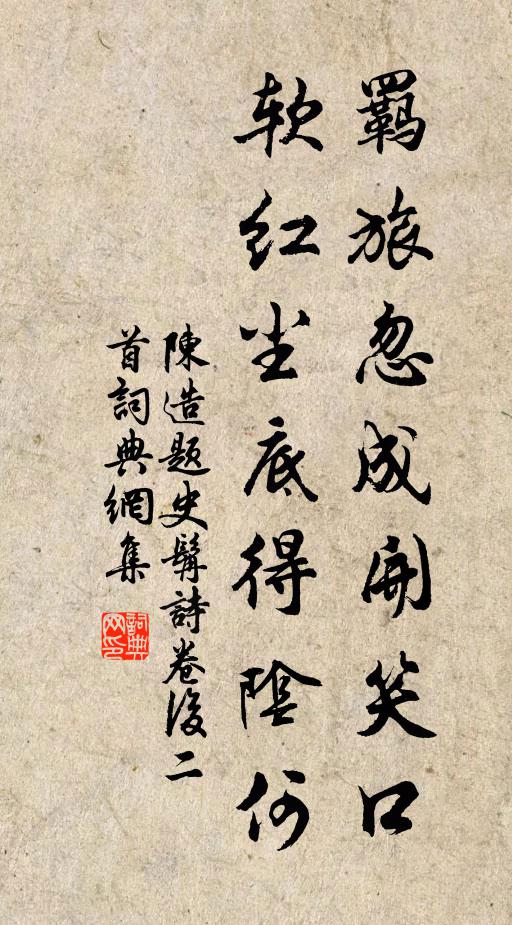 羇旅忽成開笑口
軟紅塵底得陰何
陳造題史髯詩卷後二
首詞典網集
詞典
网印